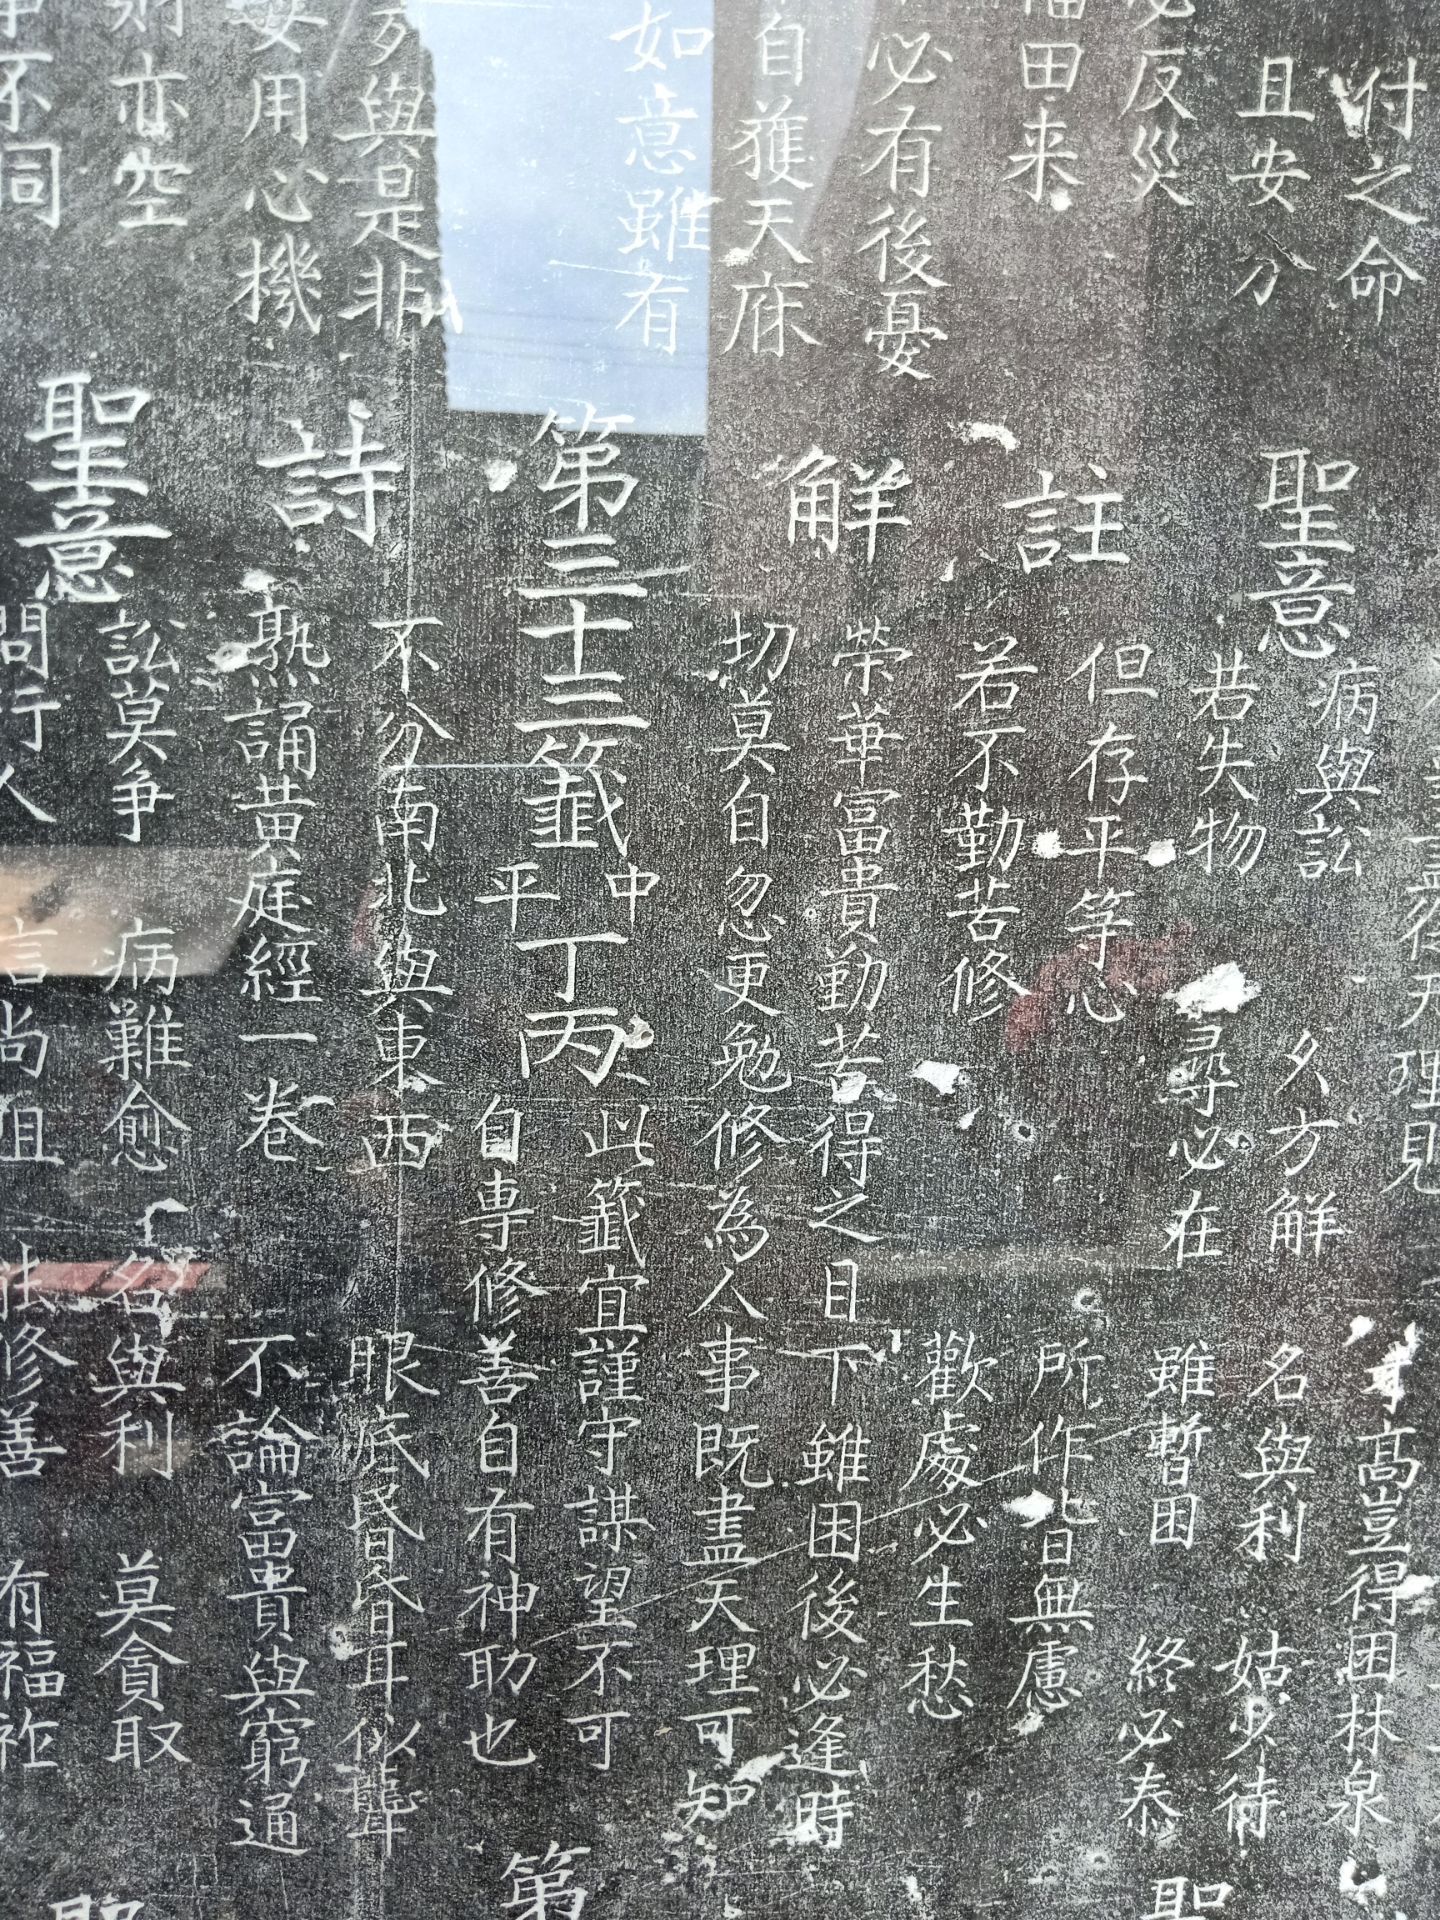 付之命
且安分
必反災
福田来
必有後憂
自獲天庥
如意雖有
與是非
安用心機
亦空
不同
理見
高豈得困林泉
聖意
病與訟
久方解
名與利
姑少待
若失物
尋必在
雖暫困
終必泰
註
但存平等心
所作皆無慮
若不勤苦修
歡處必生愁
解
榮華富貴勤苦得之目下雖困後必逢時
切莫自忽更勉修為人事既盡天理可知
第三十三籤
中平
丁丙
此籤宜謹守謀望不可
自專修善自有神助也
詩
不分南北與東西
眼底昏昏耳似聾
熟誦黄庭經一卷
不論富貴與窮通
聖意
訟莫争
病難愈
名與利
莫貪取
問行人
言尚阻
能修善
有福祉
第
聖
聖